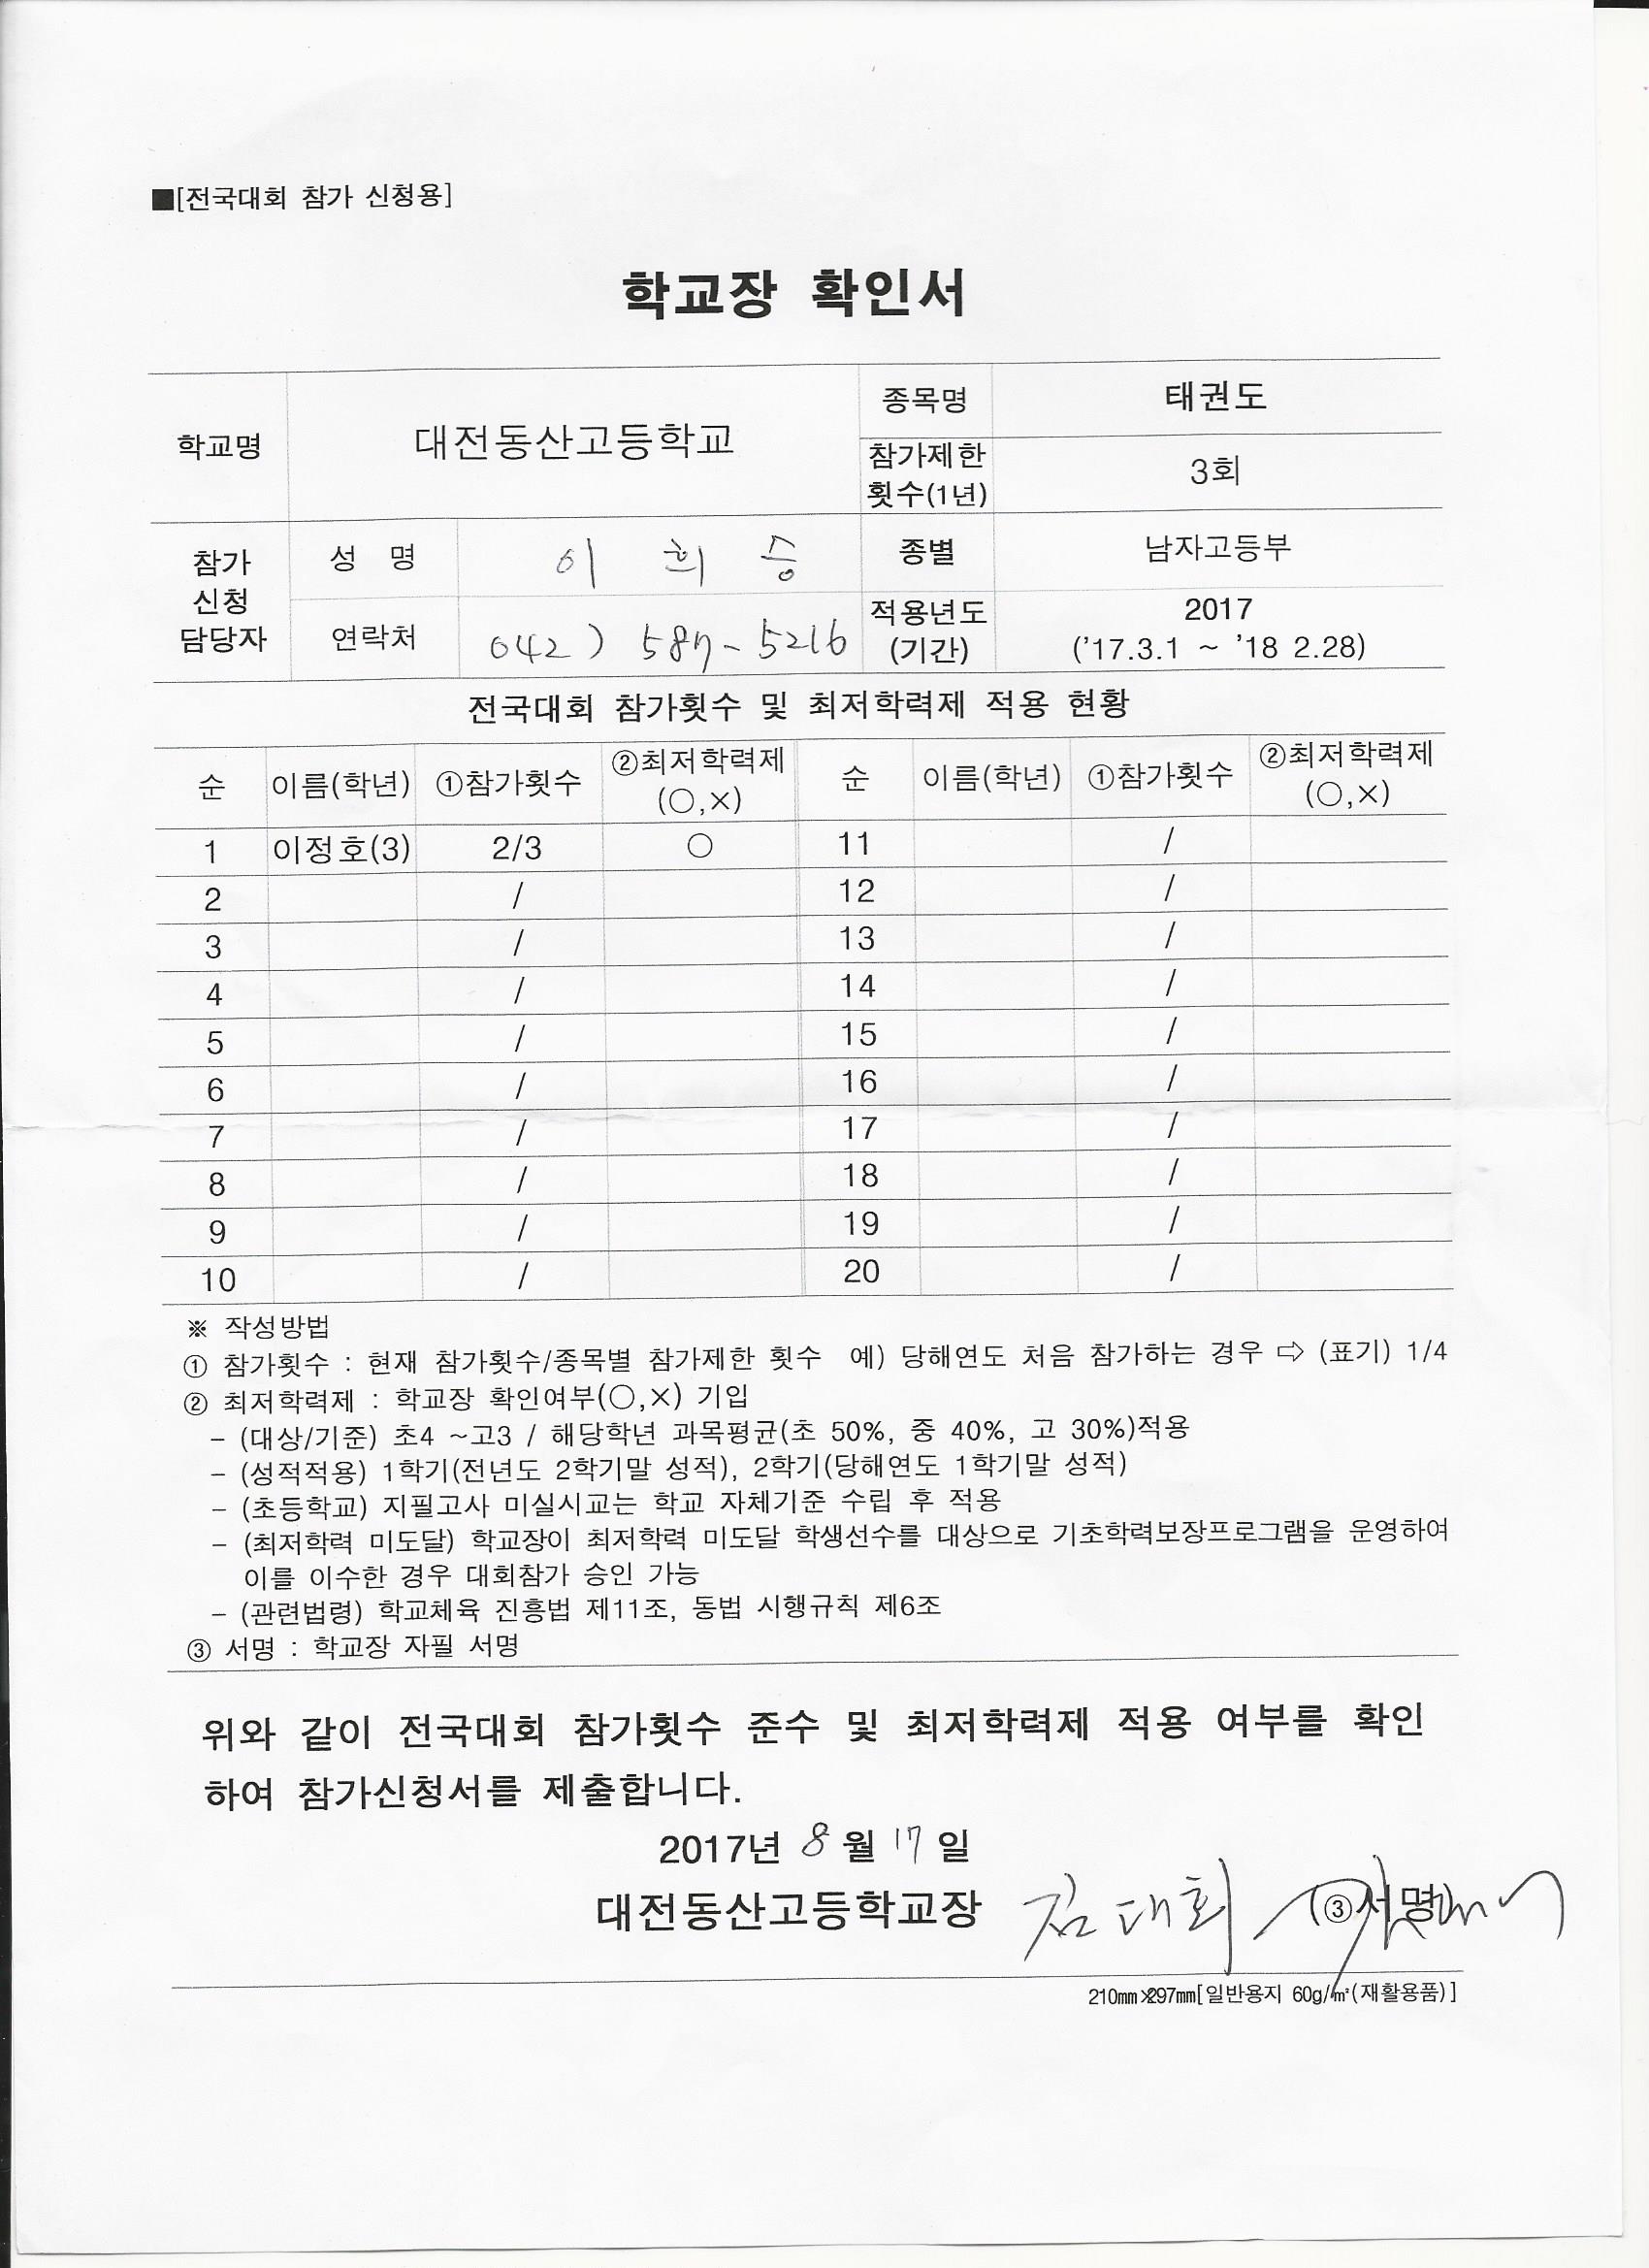 ■[전국대회 참가 신청용]
학교장 확인서
학교명 대전동산고등학교 종목명 태권도
참가제한 횟수(1년) 3회
참가 신청 담당자 성 명 이 희 승 종별 남자고등부
연락처 042) 587-5216 적용년도 (기간) 2017 ('17.3.1 ~ '18 2.28)
전국대회 참가횟수 및 최저학력제 적용 현황
순 이름(학년) ①참가횟수 ②최저학력제 (○,×) 순 이름(학년) ①참가횟수 ②최저학력제 (○,×)
1 이정호(3) 2/3 ○ 11 /
2 / 12 /
3 / 13 /
4 / 14 /
5 / 15 /
6 / 16 /
7 / 17 /
8 / 18 /
9 / 19 /
10 / 20 /
※ 작성방법
① 참가횟수 : 현재 참가횟수/종목별 참가제한 횟수 예) 당해연도 처음 참가하는 경우 ⇨ (표기) 1/4
② 최저학력제 : 학교장 확인여부(○,×) 기입
- (대상/기준) 초4 ~고3 / 해당학년 과목평균(초 50%, 중 40%, 고 30%)적용
- (성적적용) 1학기(전년도 2학기말 성적), 2학기(당해연도 1학기말 성적)
- (초등학교) 지필고사 미실시교는 학교 자체기준 수립 후 적용
- (최저학력 미도달) 학교장이 최저학력 미도달 학생선수를 대상으로 기초학력보장프로그램을 운영하여
이를 이수한 경우 대회참가 승인 가능
- (관련법령) 학교체육 진흥법 제11조, 동법 시행규칙 제6조
③ 서명 : 학교장 자필 서명
위와 같이 전국대회 참가횟수 준수 및 최저학력제 적용 여부를 확인
하여 참가신청서를 제출합니다.
2017년 8 월 17 일
대전동산고등학교장 김대회 (③서명)
210㎜×297㎜[일반용지 60g/㎡(재활용품)]